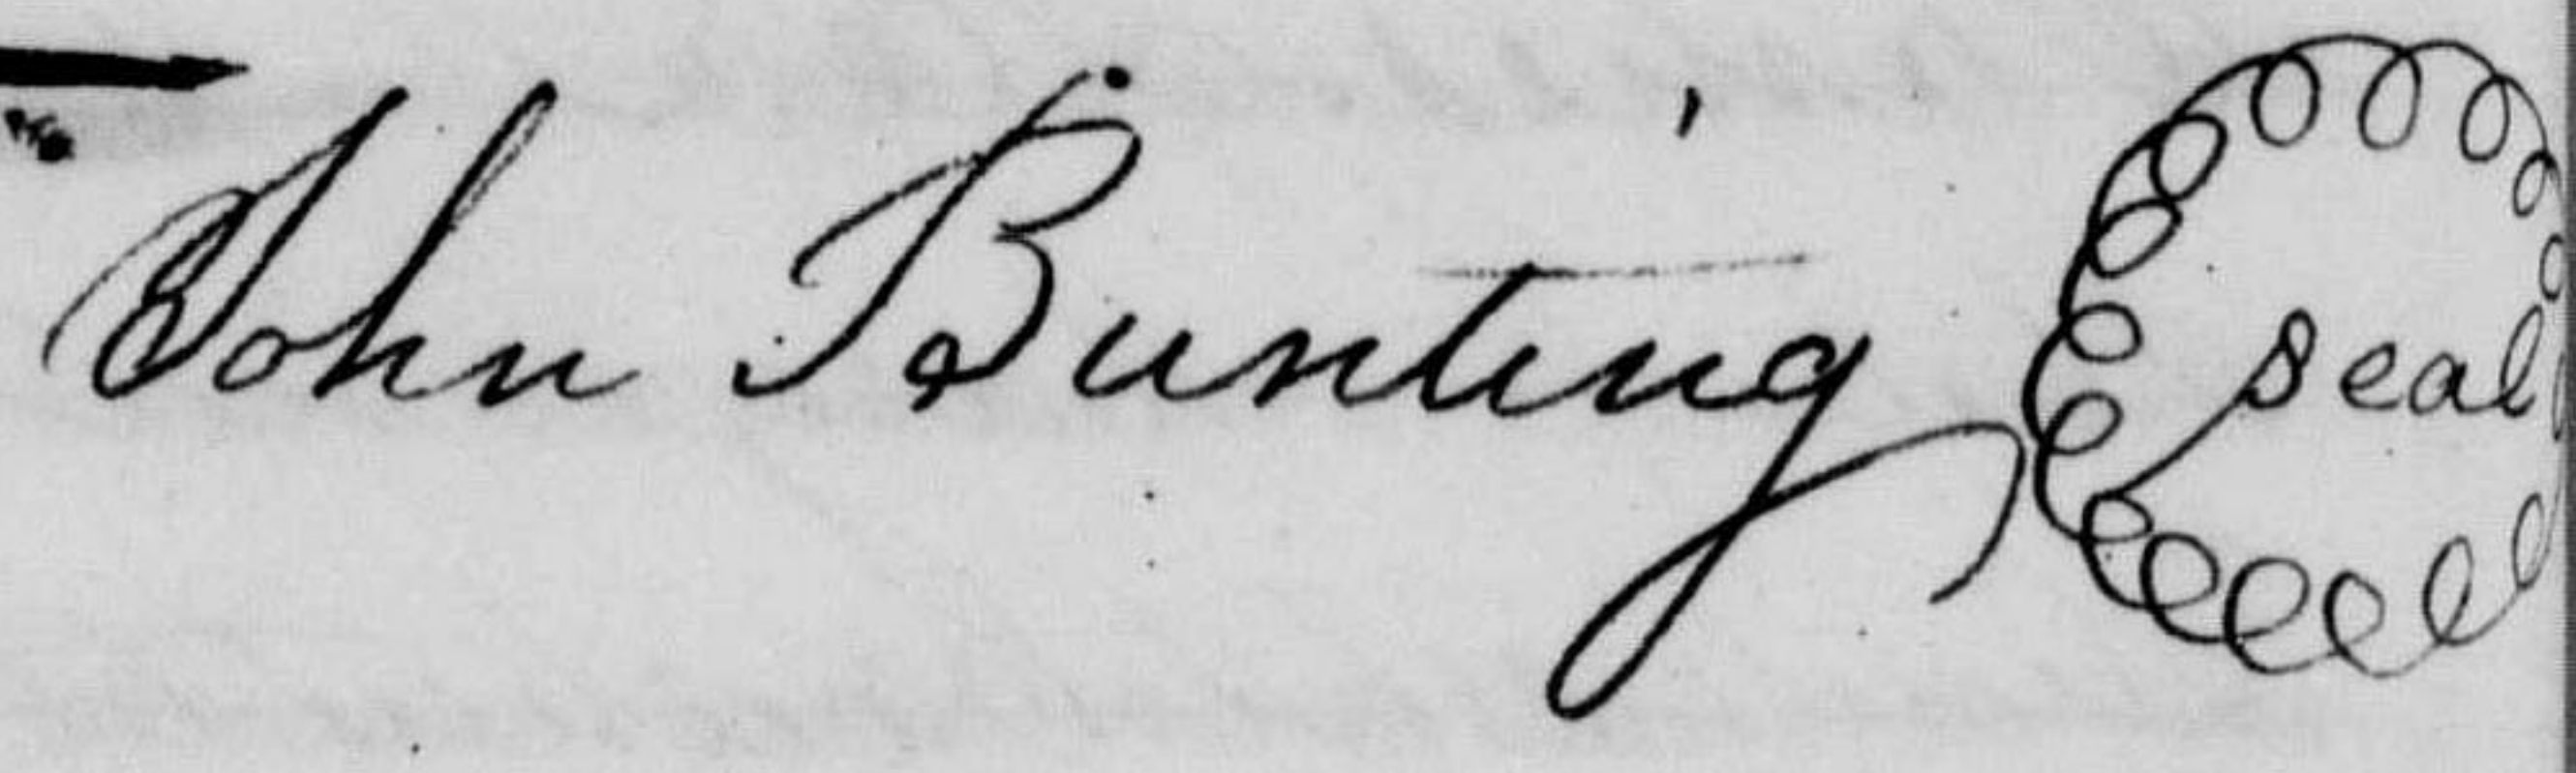 John Bunting seal